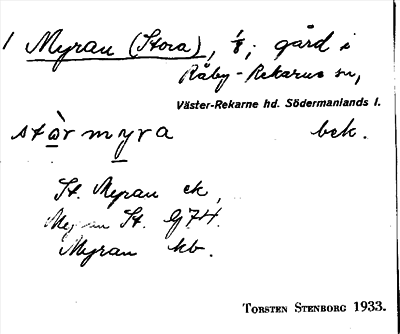 1 Myran (Stora), 1/8; gård i
Råby-Rekarne sn,
Väster-Rekarne hd. Södermanlands l.
stòrmyra bek.
St. Myran ek,
Myran St. Gj74.
Myran kb.
TORSTEN STENBORG 1933.